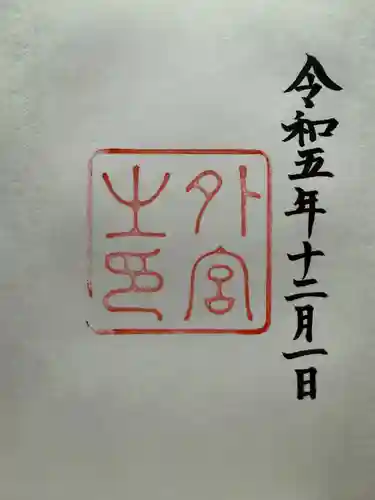 令和五年十二月一日
外宮
之印